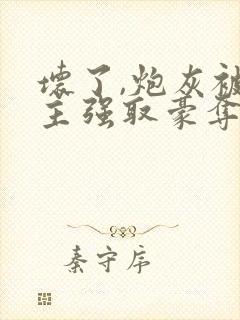 壞了,炮灰被
主强取豪夺
秦守序